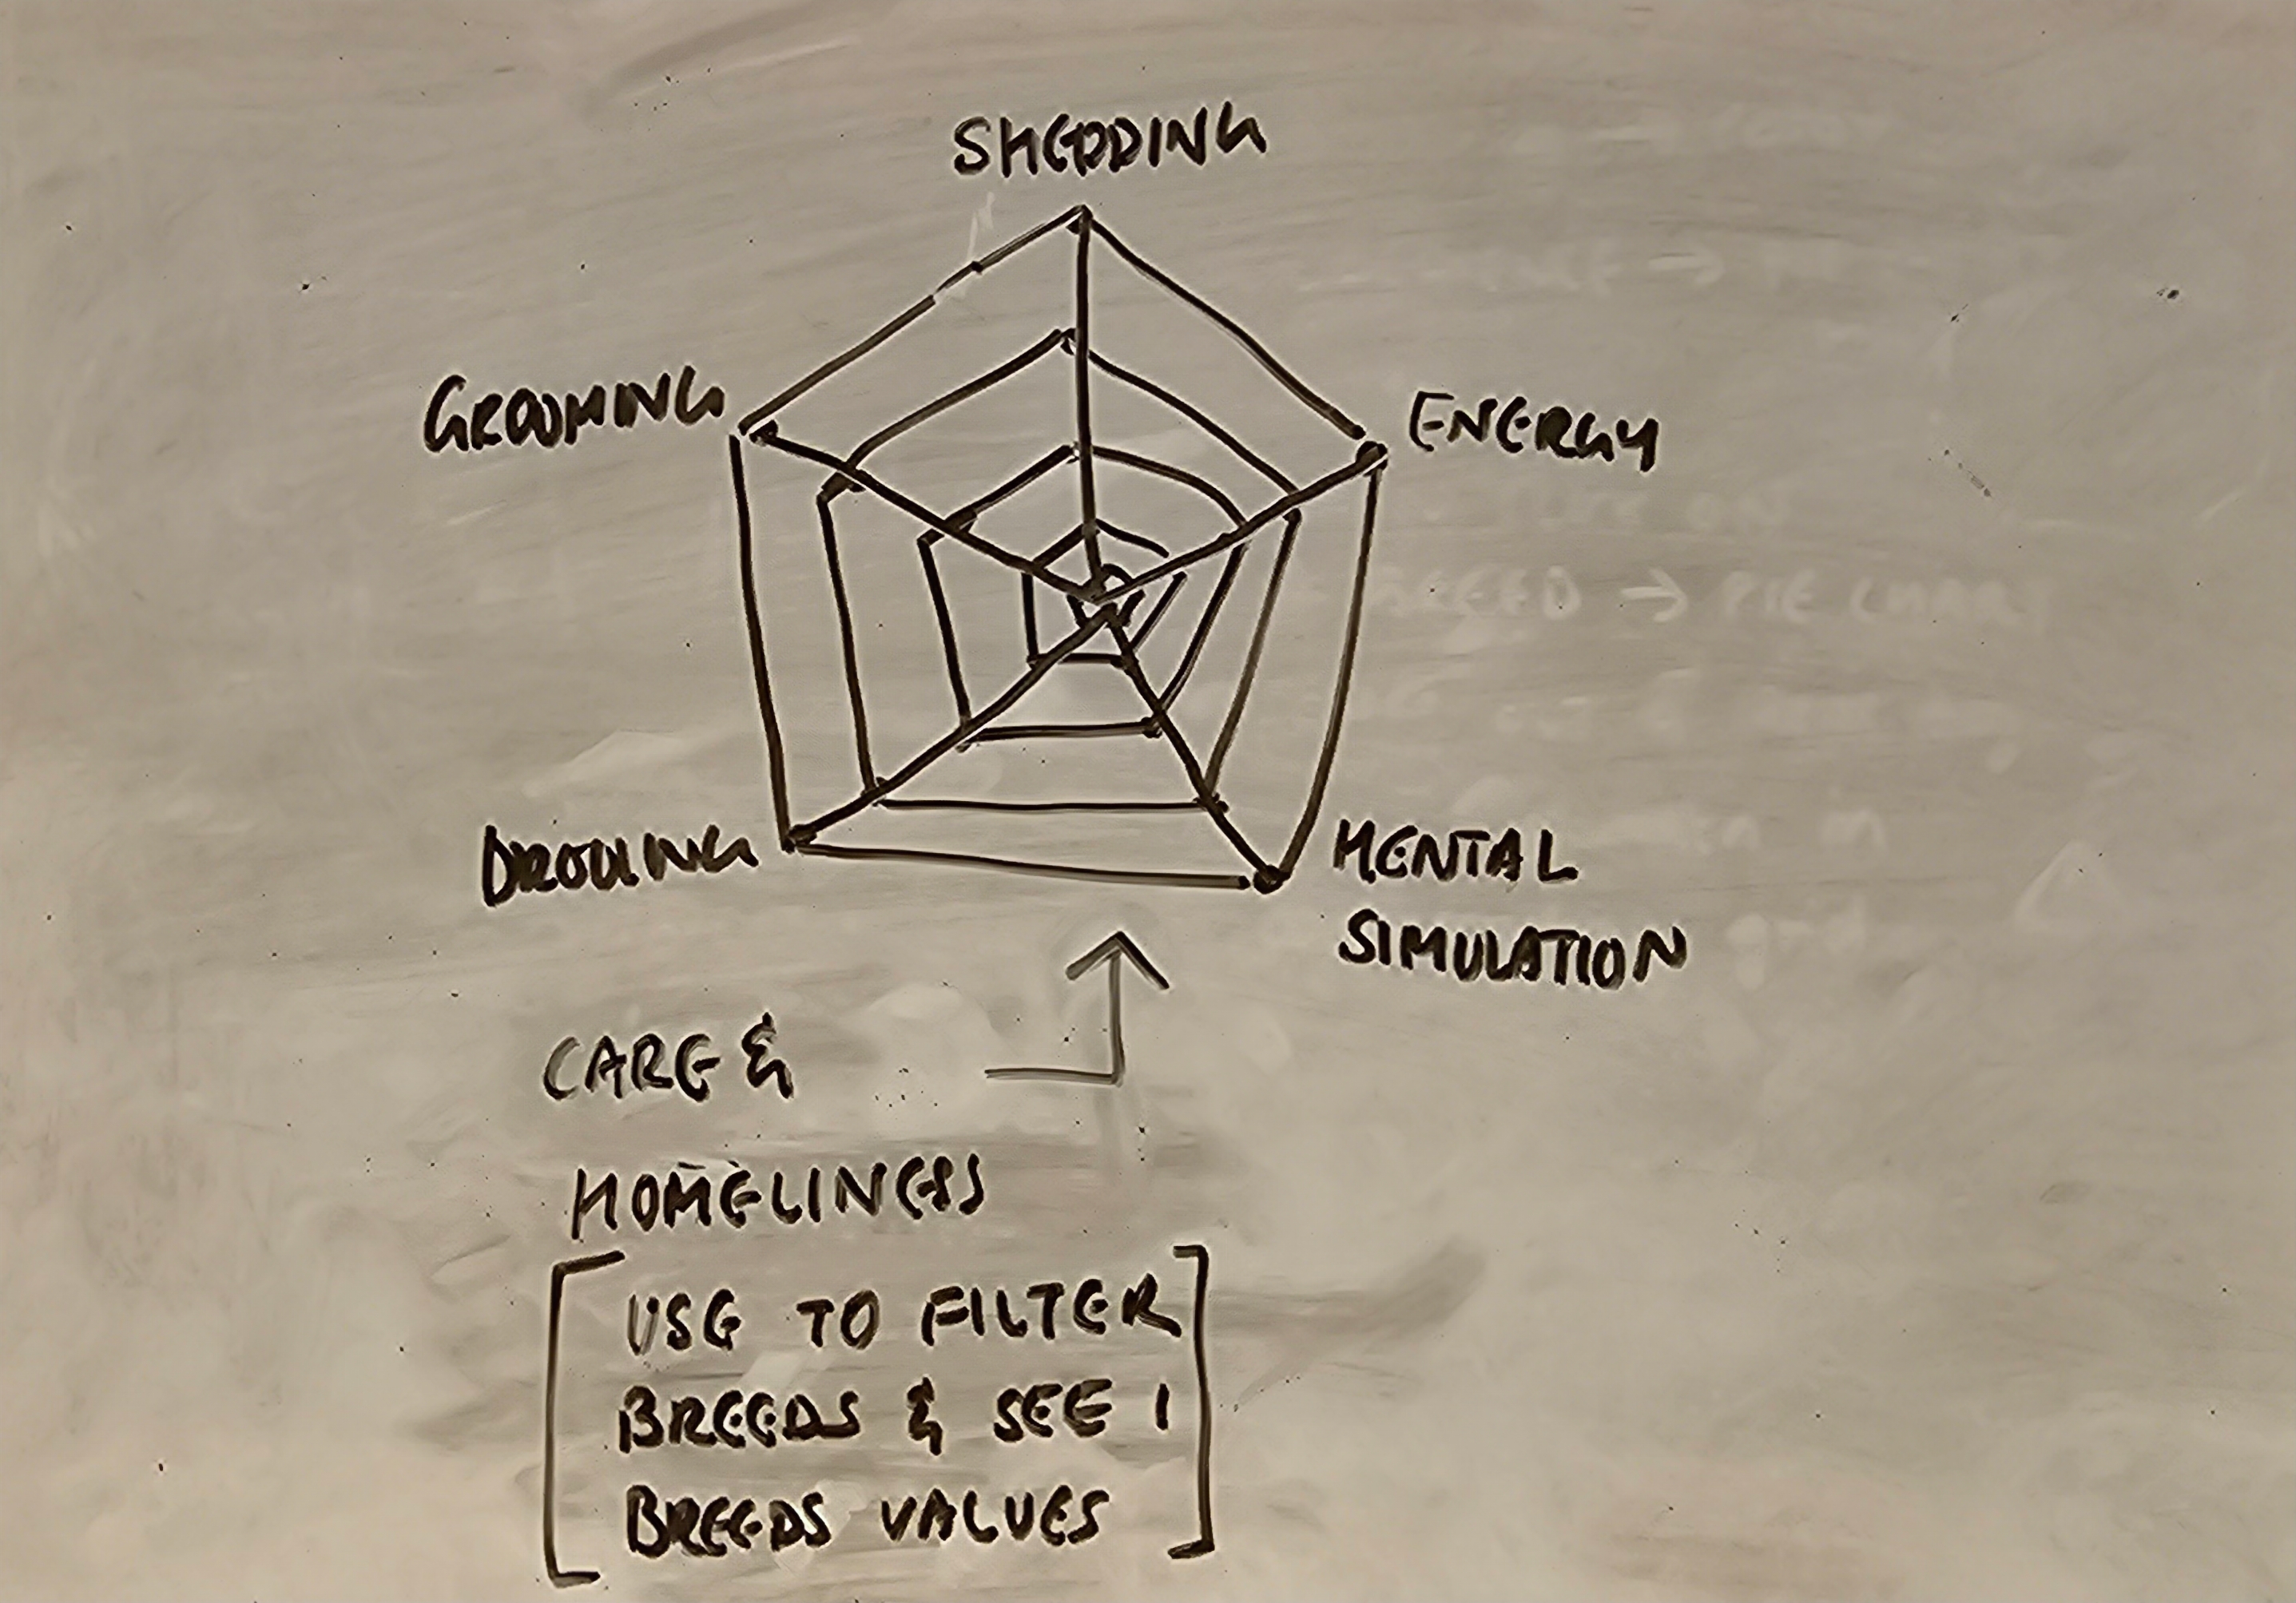 SHEDDING
GROOMING
ENERGY
DROOLING
MENTAL
SIMULATION
CARE &
HOMELINESS
USE TO FILTER
BREEDS & SEE 1
BREEDS VALUES
BREED → PIE CHART